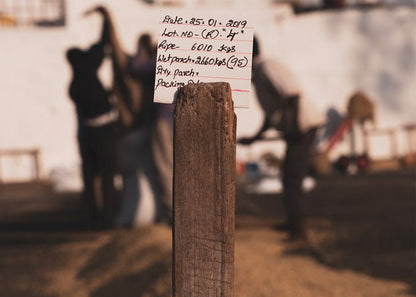 Date. 25.01.2019
Lot. NO-(R). "4"
Ripe- 6010 kgs
Wet parch. 2660kgs(95)
Dry. parch.
Packing